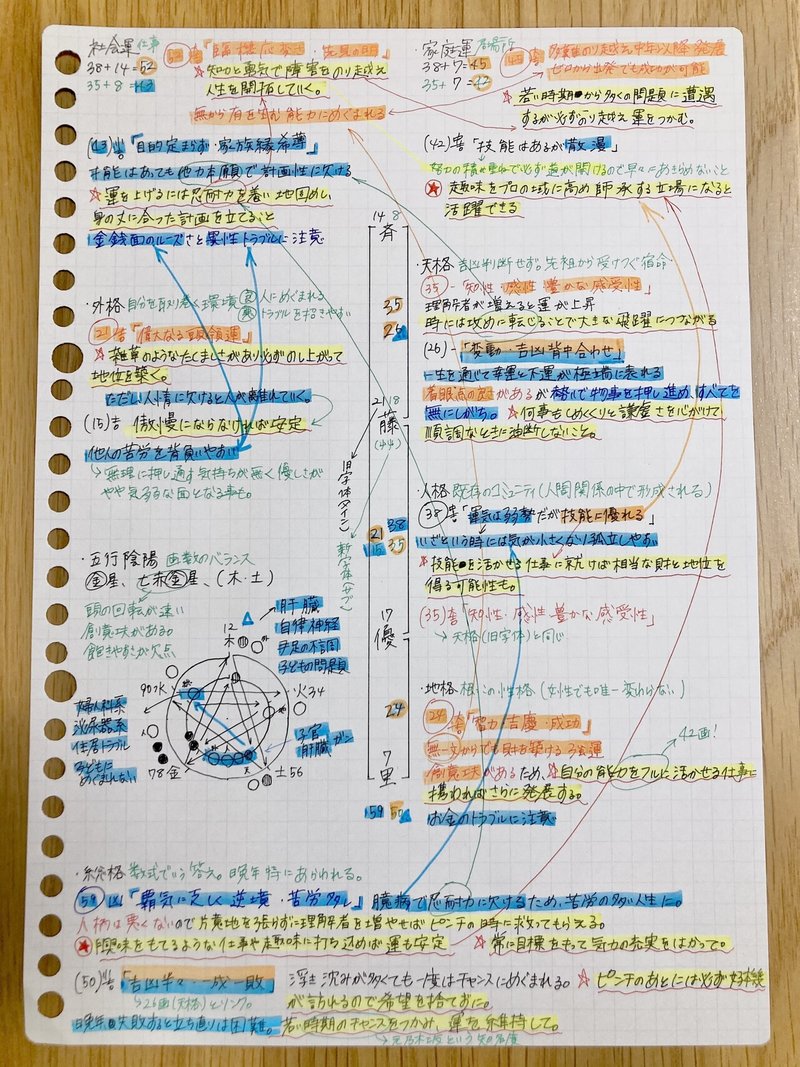 社会運 仕事
38+14=52
35+8=43
52 吉「臨機応変・先見の明」
★知力と勇気で障害をのり越え
人生を開拓していく。
無から有を生む能力にめぐまれる
(43)凶「目的定まらず・家族縁希薄」
才能はあっても他力本願で計画性に欠ける
★運を上げるには忍耐力を養い地固めし、
身の丈に合った計画を立てること
金銭面のルーズさと異性トラブルに注意
家庭運 居場所
38+7=45
35+7=42
45 吉
のり越え中年以降発展
ゼロから出発でも成功が可能
★若い時期から多くの問題に遭遇
するが必ずのり越え運をつかむ。
(42)吉「技能はあるが散漫」
努力の積み重ねで必ず道が開けるので早々にあきらめないこと
★趣味をプロの域に高め師承する立場になると
活躍できる
・外格 自分を取り巻く環境 良 人にめぐまれる
悪 トラブルを招きやすい
21 吉「偉大なる頭領運」
★雑草のようなたくましさがあり必ずのし上がって
地位を築く。
ただし人情に欠けると人が離れていく。
(15)吉 傲慢にならなければ安定
他人の苦労を背負いやすい
→無理に押し通す気持ちが無く優しさが
やや気弱な面となる事も。
・五行陰陽 画数のバランス
金星、七赤金星、(木・土)
頭の回転が速い
創意工夫がある。
飽きやすさが欠点
12
木
火34
土56
78金
90水
肝臓
自律神経
手足の不調
子どもの問題
婦人科系
泌尿器系
住居トラブル
子どもに
めぐまれない
子宮
肝臓 ガン
14 8
斉
35
26
21 18
藤
(艹)
旧字体(メイン)
新字体(サブ)
21 38
15 35
17
優
24
7
里
59 50
・天格 吉凶判断せず。先祖から受けつぐ宿命
35-「知性・感性 豊かな感受性」
理解者が増えると運が上昇
時には攻めに転じることで大きな飛躍につながる
(26)-「変動-吉凶背中合わせ」
一生を通じて幸運と不運が極端に表れる
着眼点の良さがあるが強引で物事を押し進め、すべてを
無にしがち。★何事もしめくくりと謙虚さを心がけて
順調なときに油断しないこと。
・人格 既存のコミュニティ(人間関係の中で形成される)
38 吉「運気は弱勢だが技能に優れる」
いざという時には気が小さくなり孤立しやすい
★技能を活かせる仕事に就けば相当な財と地位を
得る可能性も。
(35)吉「知性・感性 豊かな感受性」
→天格(旧字体)と同じ
・地格 根っこの性格 (女性でも唯一変わらない)
24 吉「富力・吉慶・成功」
無一文からでも財を築ける強運
創意工夫があるため、★自分の能力をフルに活かせる仕事に
携わればさらに発展する。
お金のトラブルに注意
42画!
・総格 数式でいう答え。晩年特にあらわれる。
59 凶「覇気に乏しく逆境・苦労多し」臆病で忍耐力に欠けるため、苦労の多い人生に。
人柄は悪くないので片意地を張らずに理解者を増やせばピンチの時に救ってもらえる。
★興味をもてるような仕事や趣味に打ち込めば運も安定 ★常に目標をもって気力の充実をはかって。
(50)凶吉「吉凶半々 一成一敗」浮き沈みが多くても一度はチャンスにめぐまれる。★ピンチのあとには必ず好機
→26画(天格)とリンク。が訪れるので希望を捨てずに。
晩年の失敗すると立ち直りは困難。若い時期のチャンスをつかみ、運を維持して。